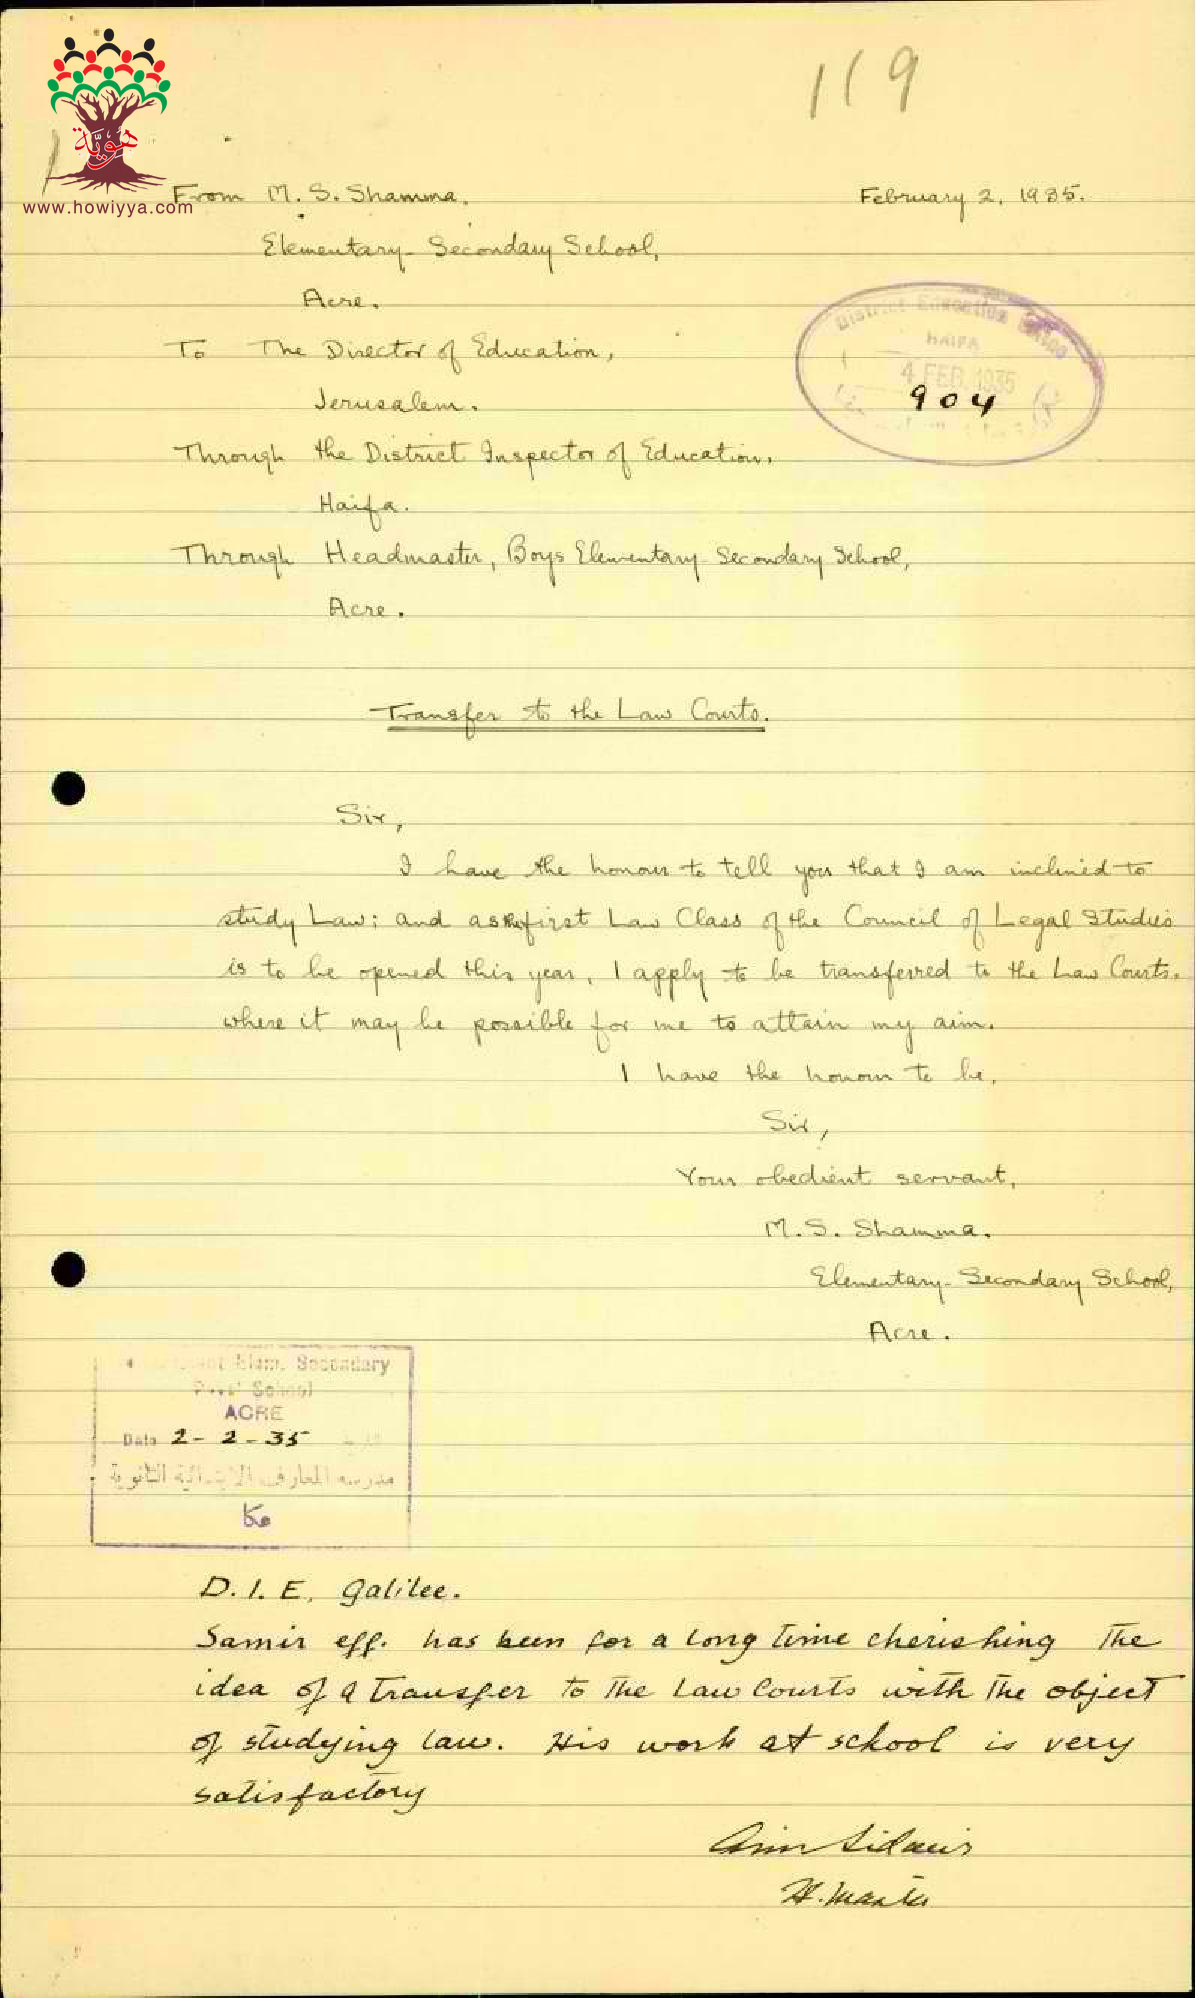 119
هويّة
www.howiyya.com
From M. S. Shamma.
February 2, 1935.
Elementary-Secondary School,
Acre.
To The Director of Education,
Jerusalem.
District Education Office
HAIFA
4 FEB. 1935
904
Through the District Inspector of Education.
Haifa.
Through Headmaster, Boys Elementary-Secondary School,
Acre.
Transfer to the Law Courts.
Sir,
I have the honour to tell you that I am inclined to
study Law; and as the first Law Class of the Council of Legal Studies
is to be opened this year, I apply to be transferred to the Law Courts.
where it may be possible for me to attain my aim.
I have the honour to be,
Sir,
Your obedient servant,
M. S. Shamma.
Elementary-Secondary School,
Acre.
Elem. Secondary
Boys' School
ACRE
Date 2-2-35
مدرسه المعارف الابتدائية الثانوية
عكا
D.I.E. Galilee.
Samir eff. has been for a long time cherishing the
idea of a transfer to the Law Courts with the object
of studying law. His work at school is very
satisfactory
H. Master